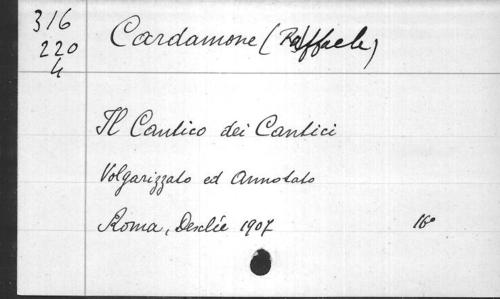 316
220
4
Cardamone (Raffaele)
Il Cantico dei Cantici
Volgarizzato ed Annotato
Roma, Desclée 1907 16°